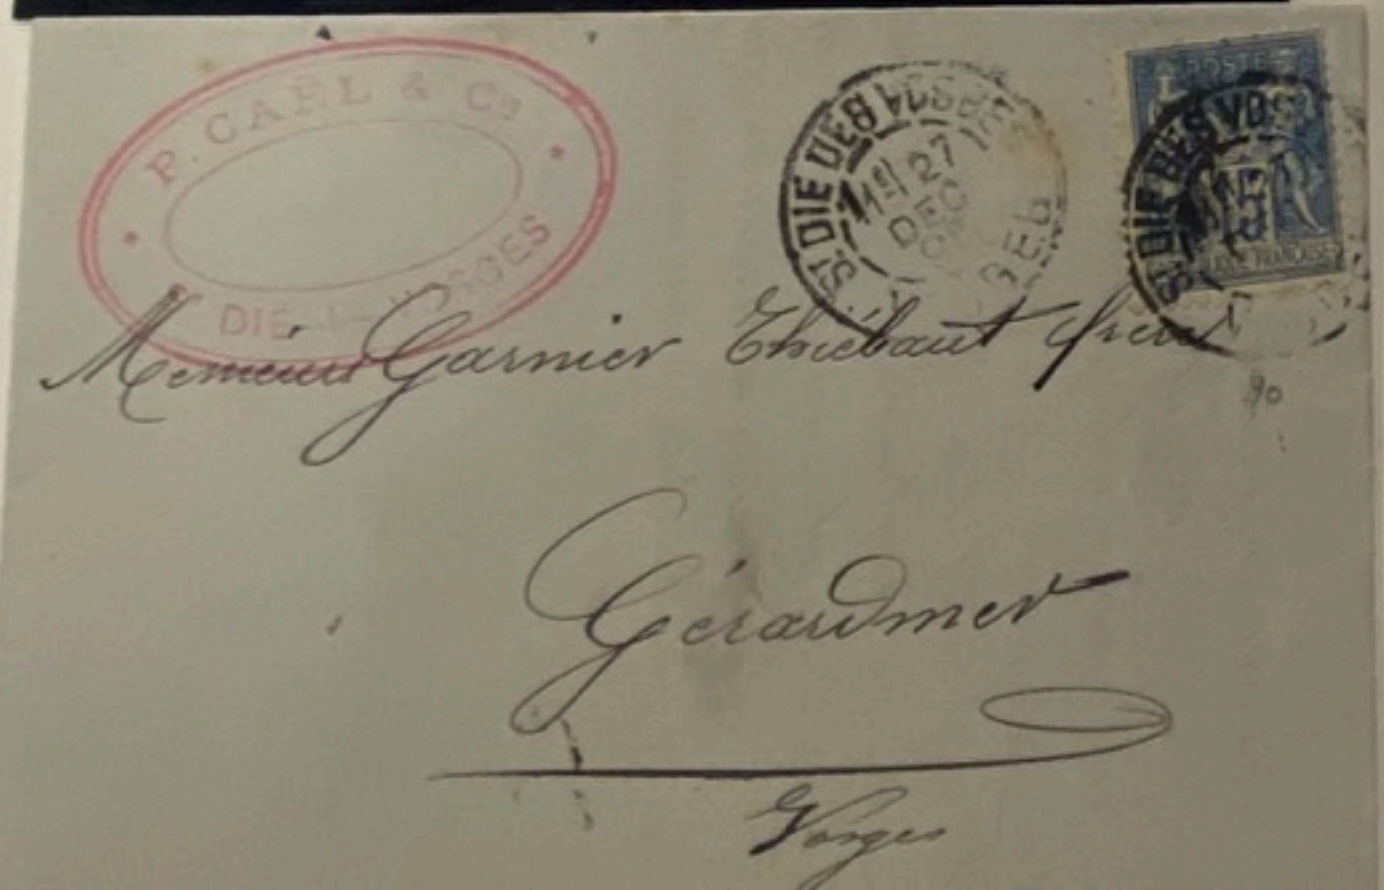 P. CAËL & Cie
DIÉ - VOSGES
ST DIÉ DES VOSGES
27
DEC
POSTE
15
FRANÇAISE
ST DIÉ DES VOS
Messieurs Garnier Thiébaut frères
90
Gérardmer
Vosges